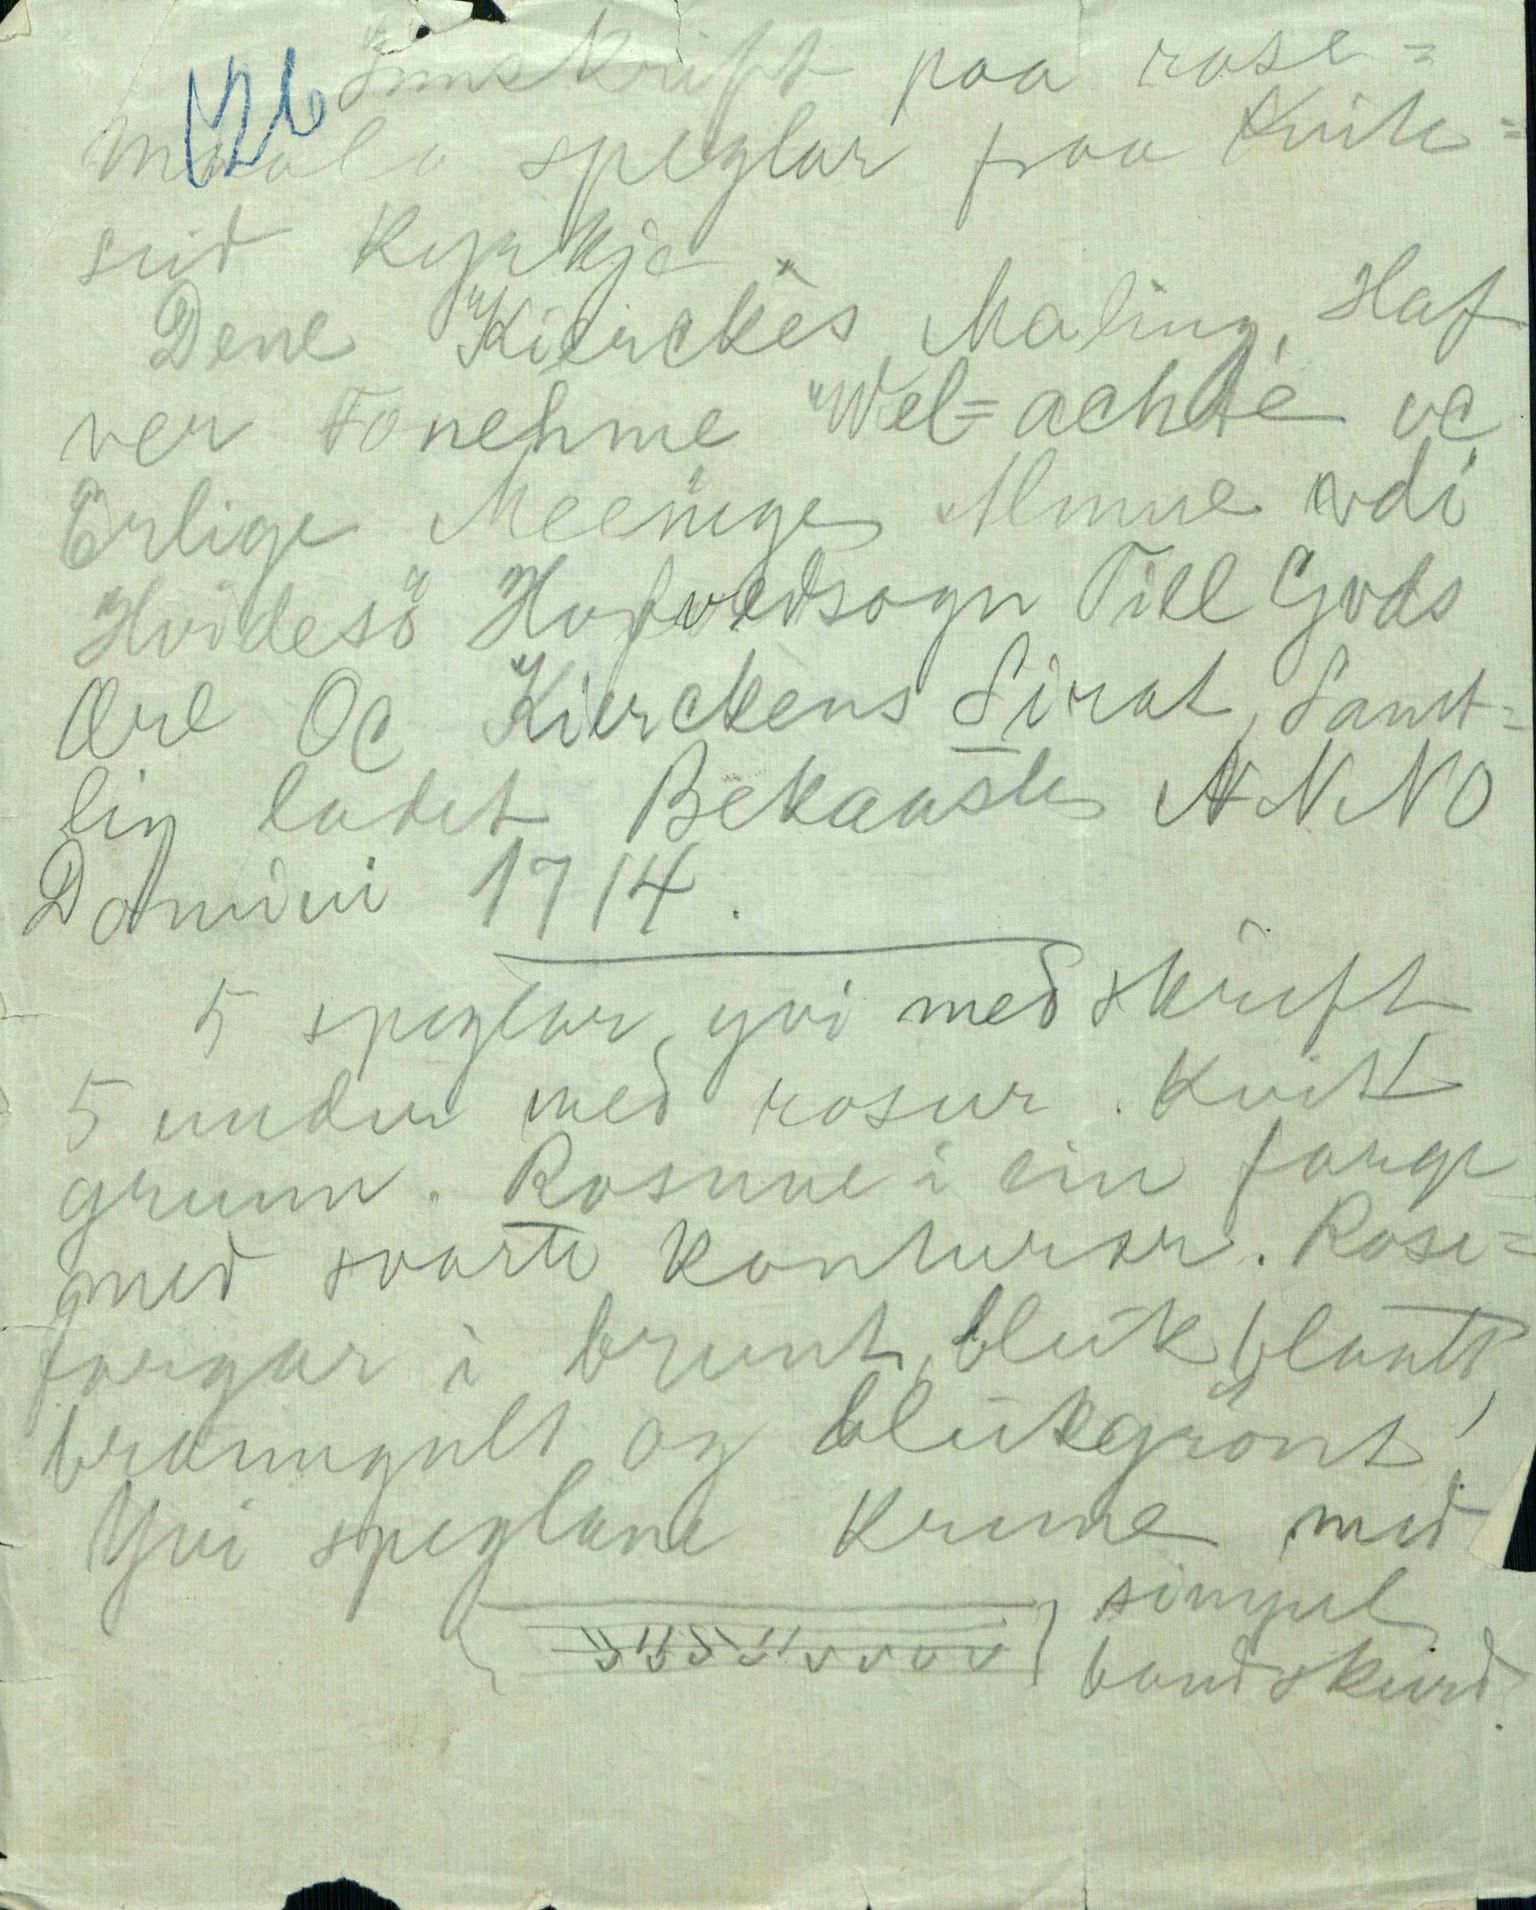 126
Innskrift paa rose=
maala speglar fraa Kvite=
seid Kyrkje.
Dene Kierckes Maling, Haf
ver Fonehme Wel=achte oc
Erlige Meenige Almue vdi
Hvidesö Hofvedsogn Till Gvds
Ære Oc Kierckens Sirat, Samt=
lig ladet Bekaaste ANNO
Domini 1714.
5 speglar, yvi med skrift
5 under med rosur. Kvit
grunn. Rosune i ein farge
med svarte konturar. Rose=
fargar i brunt, bleik blaatt,
branngult og bleikgrönt!
Yvi speglane krune med
simpel
bandskurd.